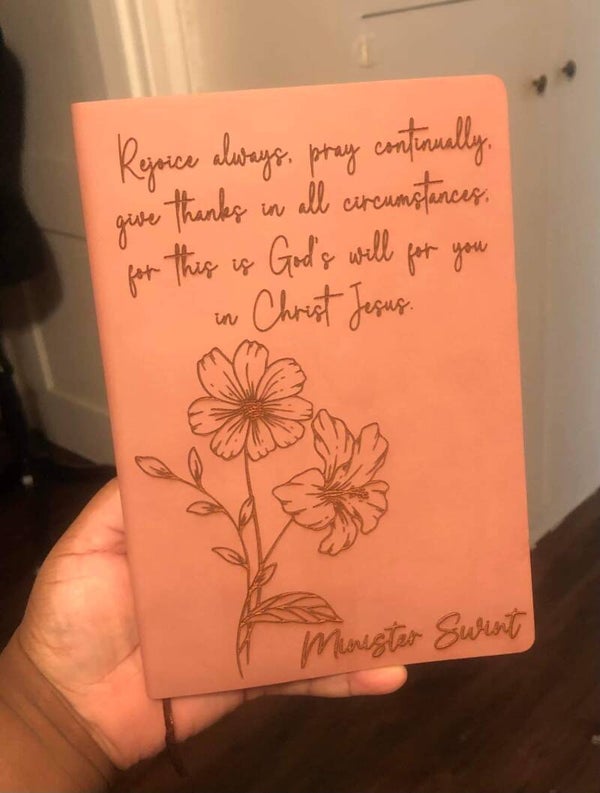 Rejoice always, pray continually,
give thanks in all circumstances,
for this is God's will for you
in Christ Jesus.
Minister Swint